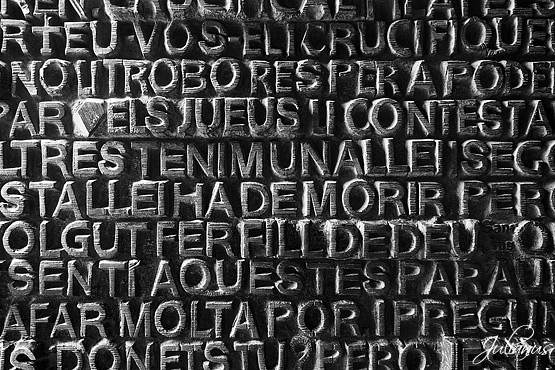 RTEU-VOS-EL I CRUCIFIQUE
NO LI TROBO RES PER A PODE
PAR ELS JUEUS LI CONTESTA
LTRES TENIM UNA LLEI I SEGO
STA LLEI HA DE MORIR PER
OLGUT FER FILL DE DEU
SENTI AQUESTES PARAU
AFAR MOLTA POR I PREGUN
S D'ON ETS TU? PERO
Julianus